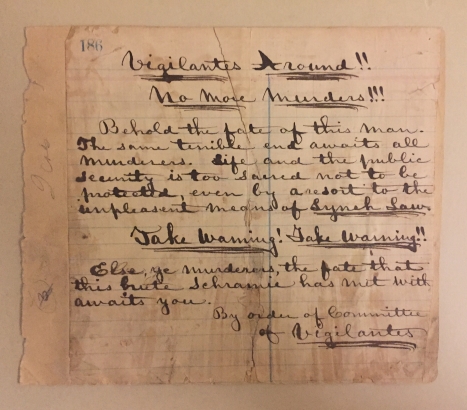 186
Vigilantes Around!!
No More Murders!!!
Behold the fate of this man.
The same terrible end awaits all
murderers. Life and the public
security is too sacred not to be
protected, even by a resort to the
unpleasent means of Lynch Law.
Take Warning! Take Warning!!
Else, ye murderers, the fate that
this brute Schramie has met with
awaits you.
By order of Committee
of Vigilantes